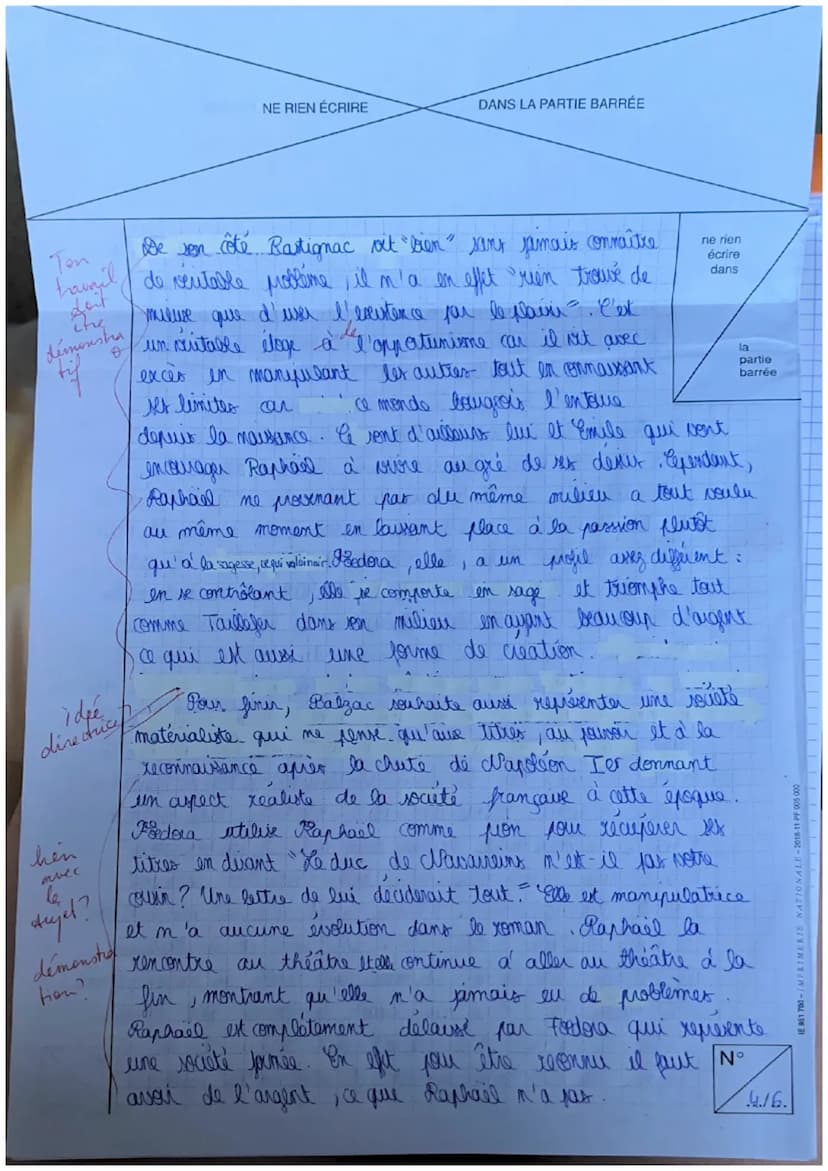 NE RIEN ÉCRIRE
DANS LA PARTIE BARRÉE
ne rien
écrire
dans
la
partie
barrée
De son côté Rastignac vit "bien" sans jamais connaître
de véritable problème, il n'a en effet "rien trouvé de
mieux que d'user l'existence par le plaisir". C'est
un véritable éloge à de l'opportunisme car il vit avec
excès en manipulant les autres tout en connaissant
ses limites car ce monde bourgeois l'entoure
depuis la naissance. Ce sont d'ailleurs lui et Emile qui vont
encourager Raphaël à vivre au gré de ses désirs. Cependant,
Raphaël ne provenant pas du même milieu a tout voulu
au même moment en laissant place à la passion plutôt
qu'à la sagesse, ce qui va Foedora, elle, a un profil assez différent :
en se contrôlant, elle se comporte en sage et triomphe tout
comme Taillefer dans son milieu en ayant beaucoup d'argent
ce qui est aussi une forme de création.
Pour finir, Balzac souhaite aussi représenter une société
matérialiste qui ne pense qu'aux titres, au pouvoir et à la
reconnaissance après la chute de Napoléon Ier donnant
un aspect réaliste de la société française à cette époque.
Foedora utilise Raphaël comme pion pour récupérer ses
titres en disant "Le duc de Navarreins n'est-il pas votre
cousin ? Une lettre de lui déciderait tout." Elle est manipulatrice
et n'a aucune évolution dans le roman. Raphaël la
rencontre au théâtre et elle continue à aller au théâtre à la
fin, montrant qu'elle n'a jamais eu de problèmes.
Raphaël est complètement délaissé par Foedora qui représente
une société fermée. En effet pour être reconnu il faut
avoir de l'argent, ce que Raphaël n'a pas.
Ton
travail
doit
être
démonstra
tif
idée
directrice ?
lien
avec
le
sujet ?
démonstra
tion ?
IE 861 780 - IMPRIMERIE NATIONALE - 2018-11 PF 005 000
N°
4/6